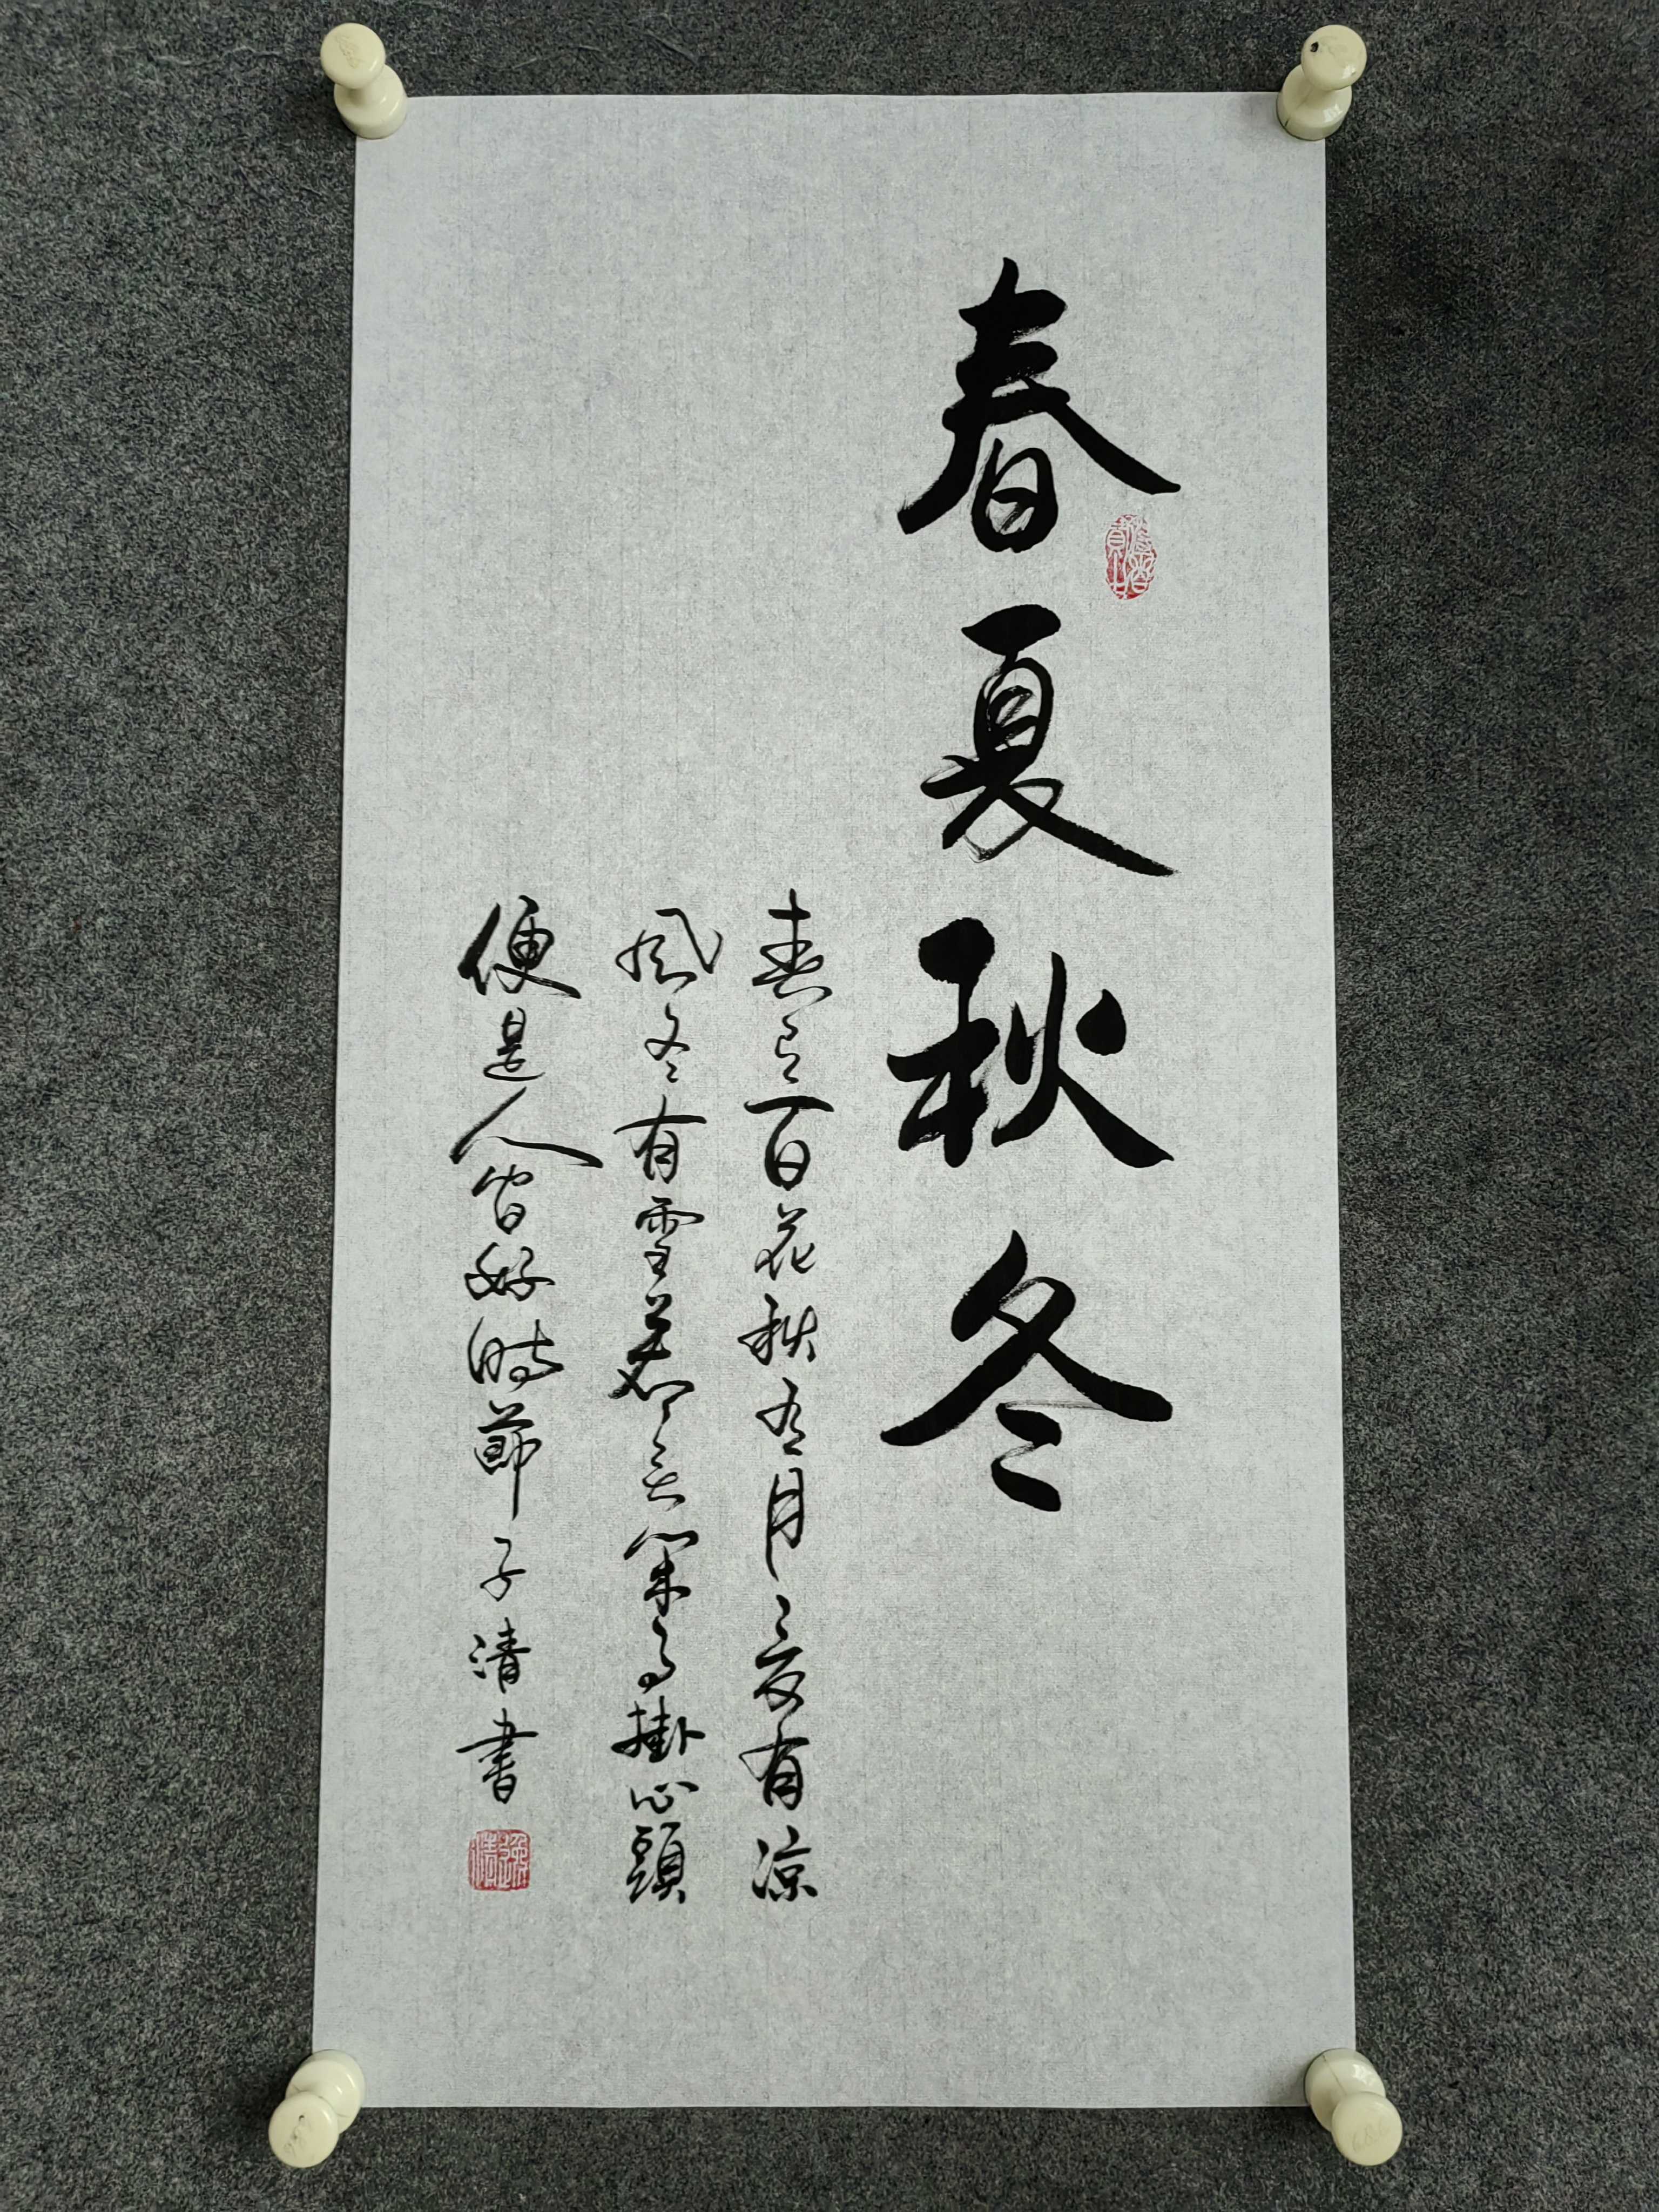 春夏秋冬
春有百花秋有月夏有涼
風冬有雪若無閑事掛心頭
便是人間好時節子清書